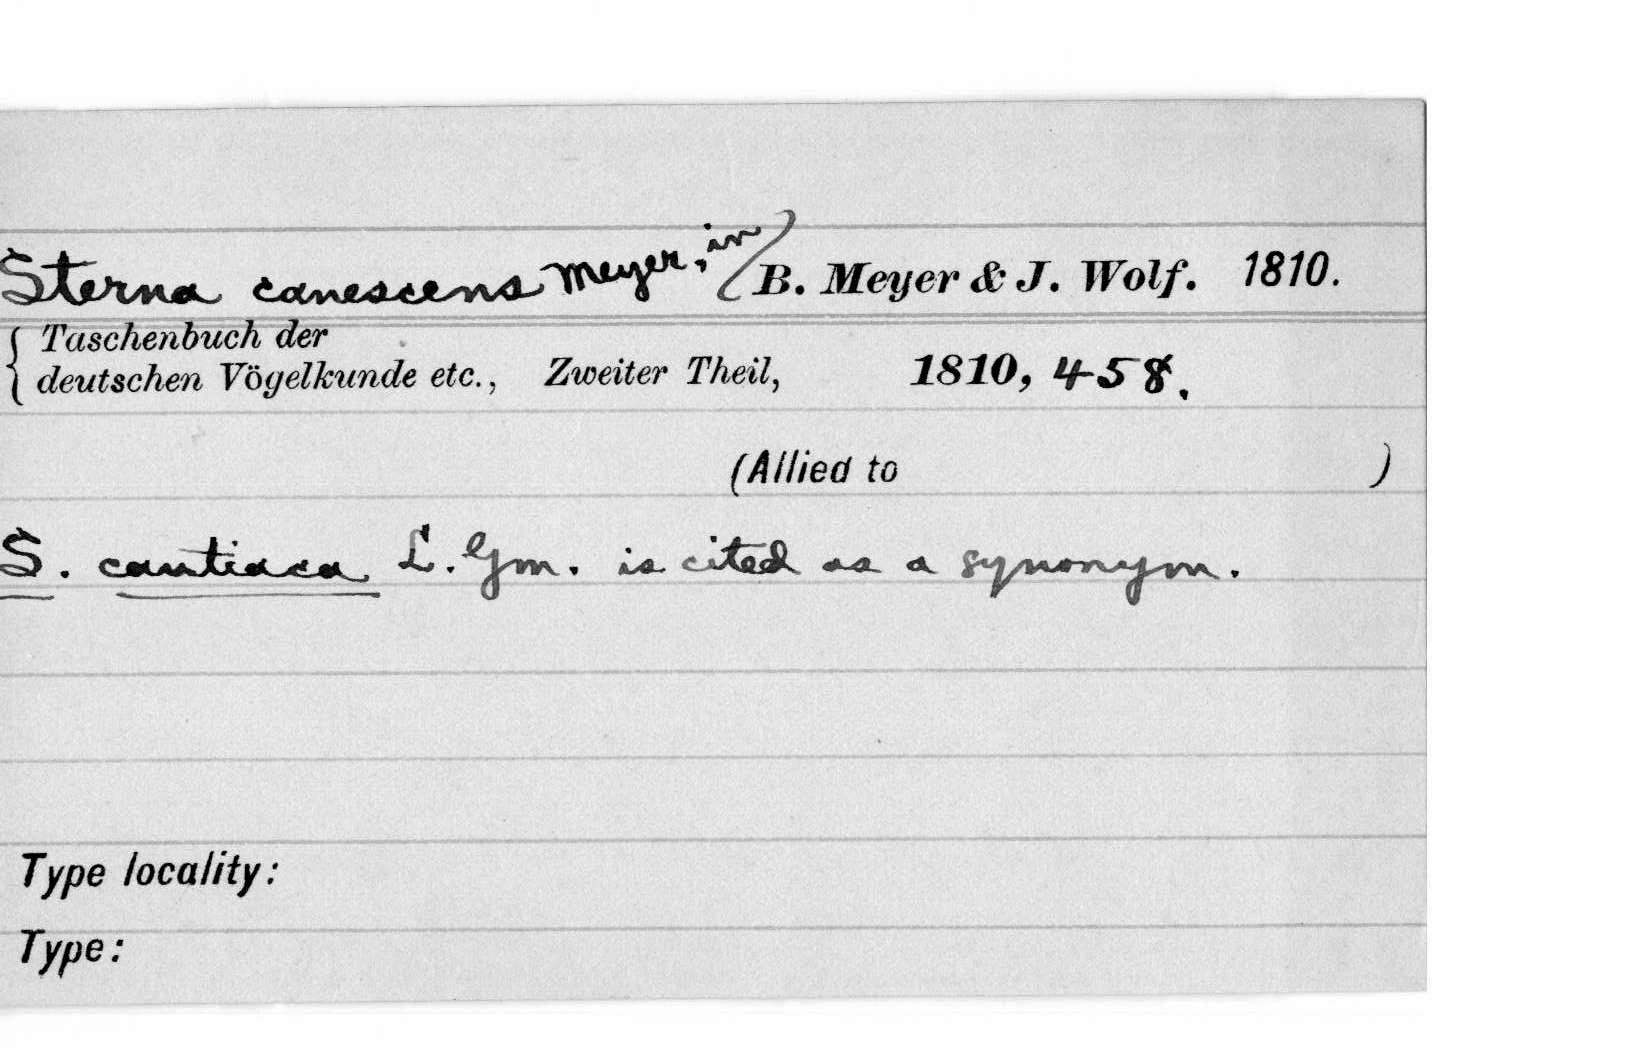 Sterna canescens Meyer, in B. Meyer & J. Wolf. 1810.
{ Taschenbuch der
deutschen Vögelkunde etc., Zweiter Theil, 1810, 458.
(Allied to )
S. cantiaca L. Gm. is cited as a synonym.
Type locality:
Type: